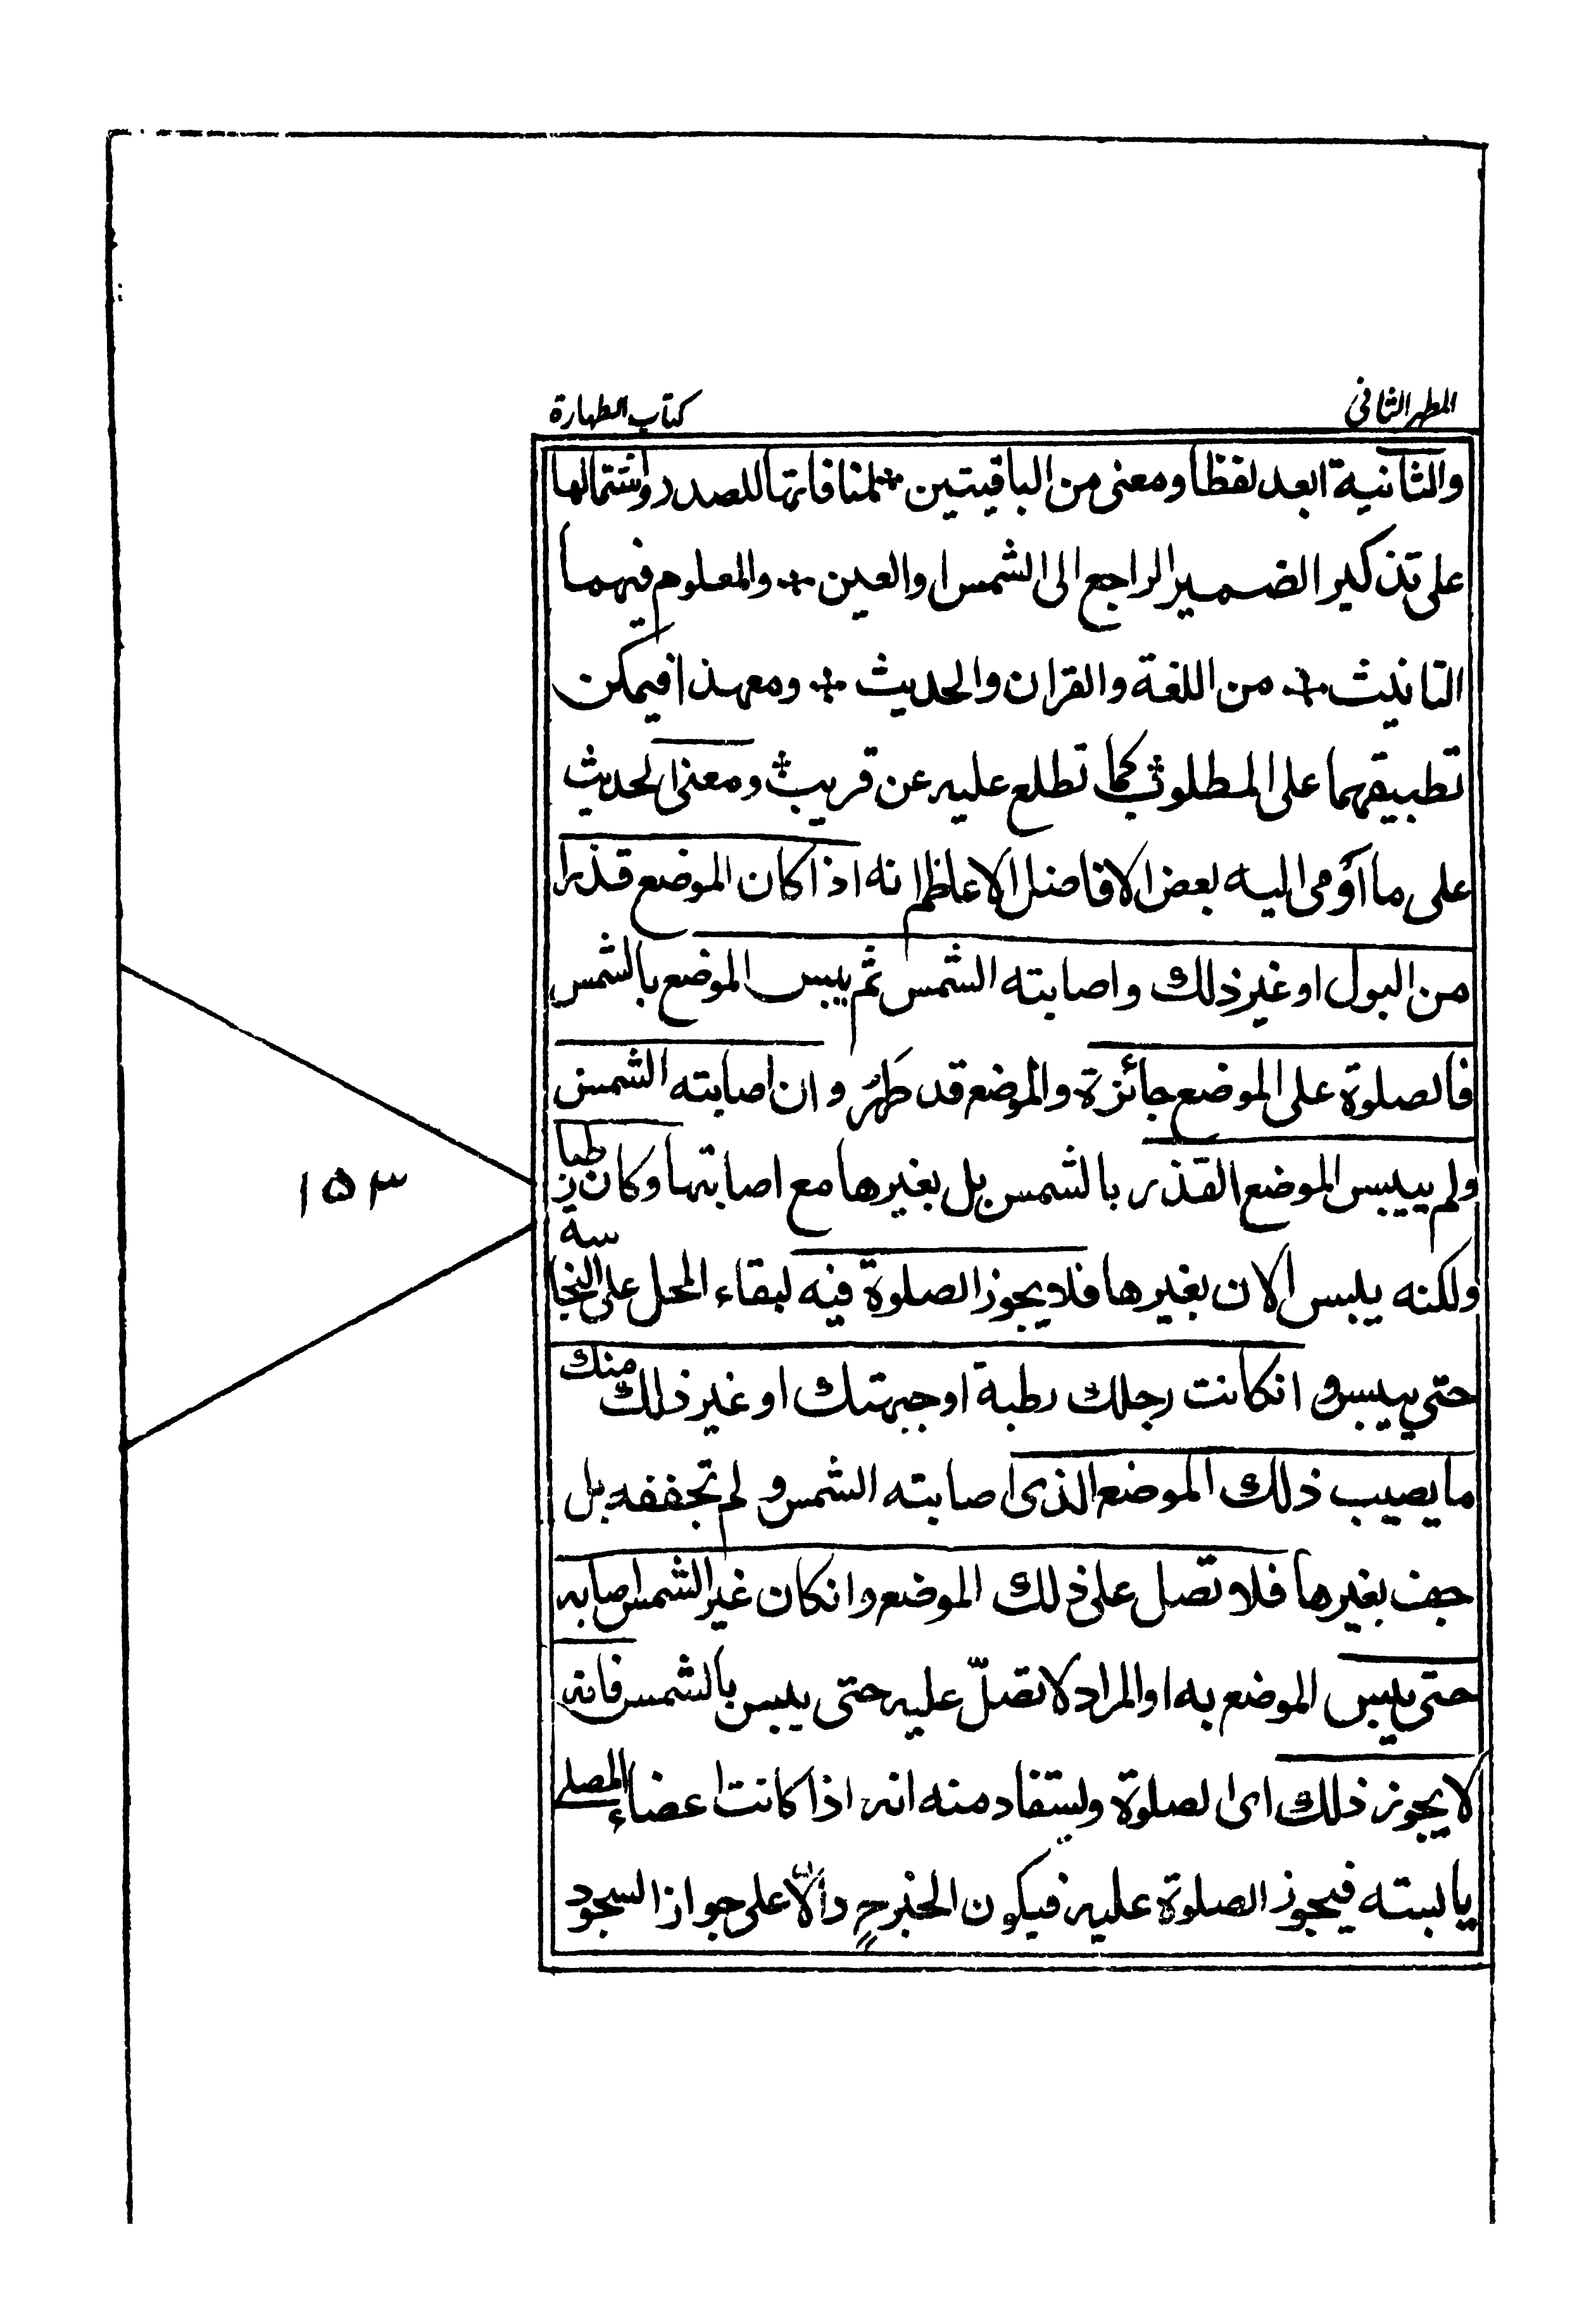 المطهر الثانی
كتاب الطهارة
والثانية ابعد لفظا ومعنى من الباقيتين لمنافاتها للصدر واشتمالها
على تذكير الضمير الراجع الى الشمس او العين والمعلوم فيهما
التانيث من اللغة والقران والحديث ومعهذا فيمكن
تطبيقهما على المطلوب كما تطلع عليه عن قريب ومعنى الحديث
على ما اؤمى اليه بعض الافاضل الاعاظم انه اذا كان الموضع قذرا
من البول او غير ذلك واصابته الشمس ثم يبس الموضع بالشمس
فالصلوة على الموضع جائزة والموضع قد طهر وان اصابته الشمس
ولم ييبس الموضع القذر بالشمس بل بغيرها مع اصابتها وكان رطبا
ولكنه يبس الان بغيرها فلا يجوز الصلوة فيه لبقاء المحل على النجاسة
حتى ييبس وانكانت رجلك رطبة او جبهتك او غير ذلك منك
ما يصيب ذلك الموضع الذى اصابته الشمس و لم تجففه بل
جف بغيرها فلا تصل على ذلك الموضع وانكان غير الشمس اصابه
حتى ييبس الموضع به او المراد لا تصلّ عليه حتى ييبس بالشمس فانه
لا يجوز ذلك اى الصلوة ويستفاد منه انه اذا كانت اعضاء المصلى
يابسته فيجوز الصلوة عليه فيكون الخبر ح دالّا على جواز السجود
١٥٣